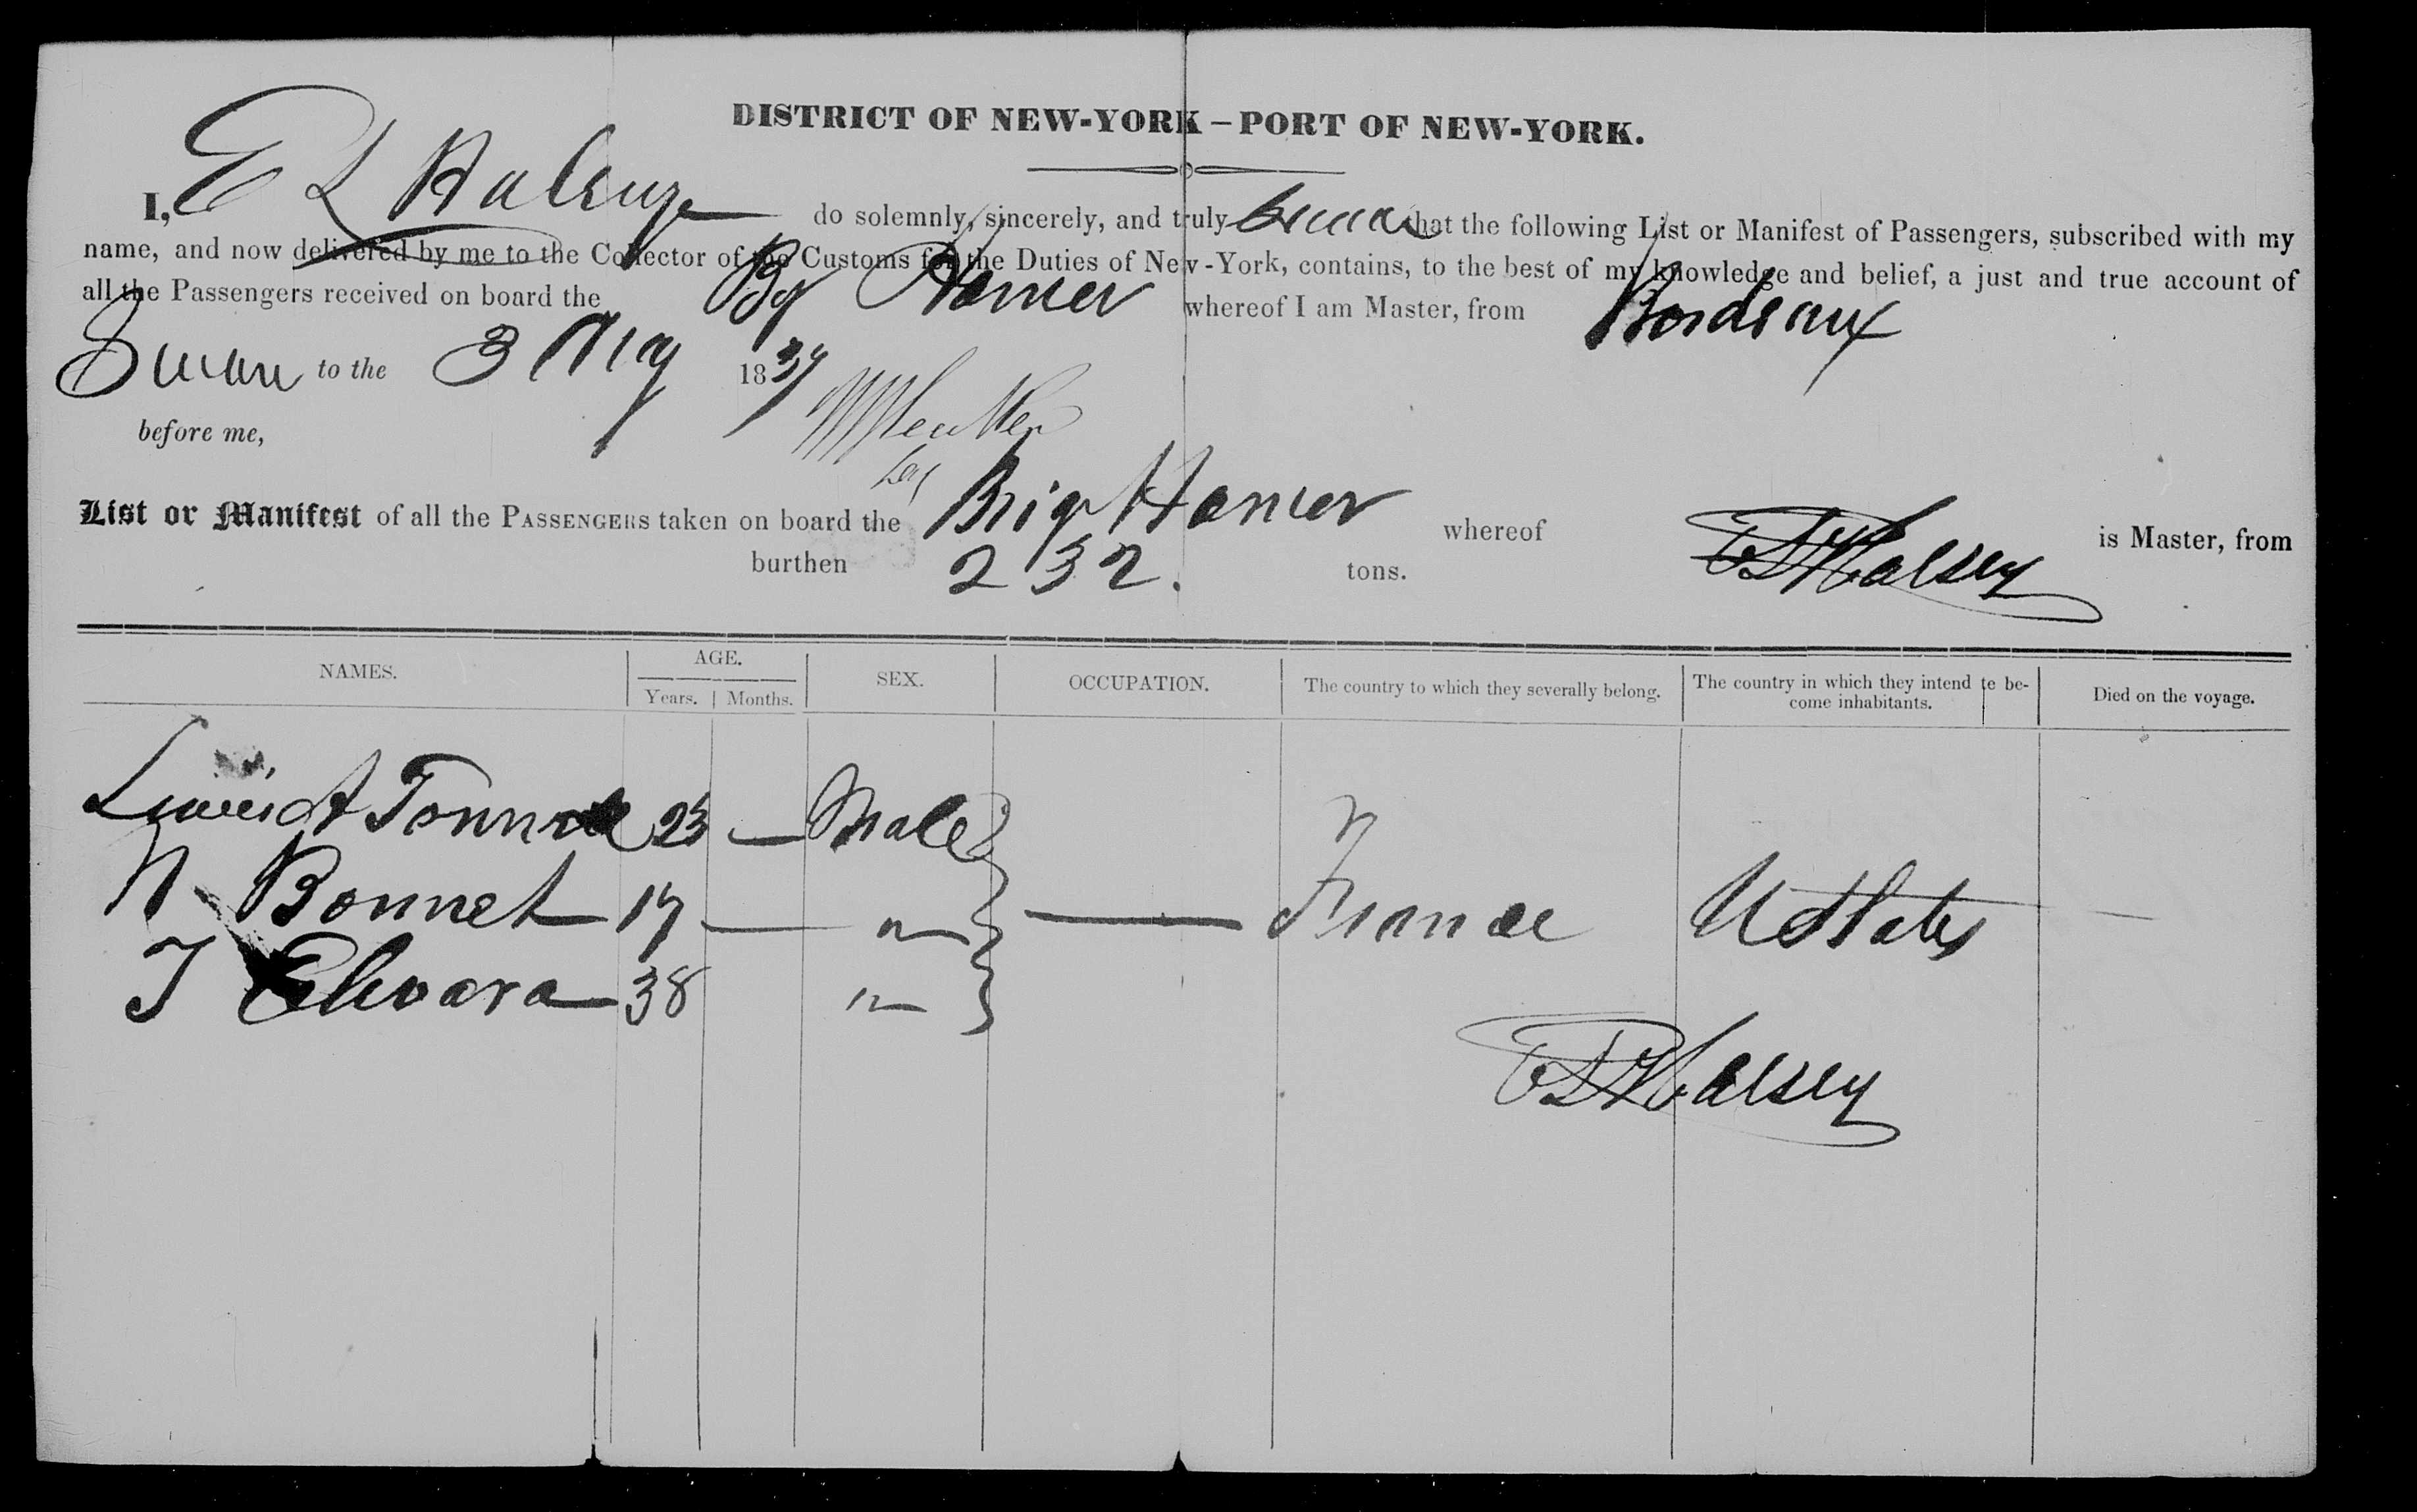 DISTRICT OF NEW-YORK – PORT OF NEW-YORK.
I, E L Halsey do solemnly, sincerely, and truly swear that the following List or Manifest of Passengers, subscribed with my
name, and now delivered by me to the Collector of the Customs for the Duties of New-York, contains, to the best of my knowledge and belief, a just and true account of
all the Passengers received on board the Bg Homer whereof I am Master, from Bordeaux
Sworn to the 3 May 1834
before me,
List or Manifest of all the PASSENGERS taken on board the Brig Homer whereof E L Halsey is Master, from
burthen 232. tons.
NAMES. AGE. SEX. OCCUPATION. The country to which they severally belong. The country in which they intend to be-
come inhabitants. Died on the voyage.
Years. Months.
A 23 — Male
N Bonnet 17 — "
38 "
France U States
E L Halsey